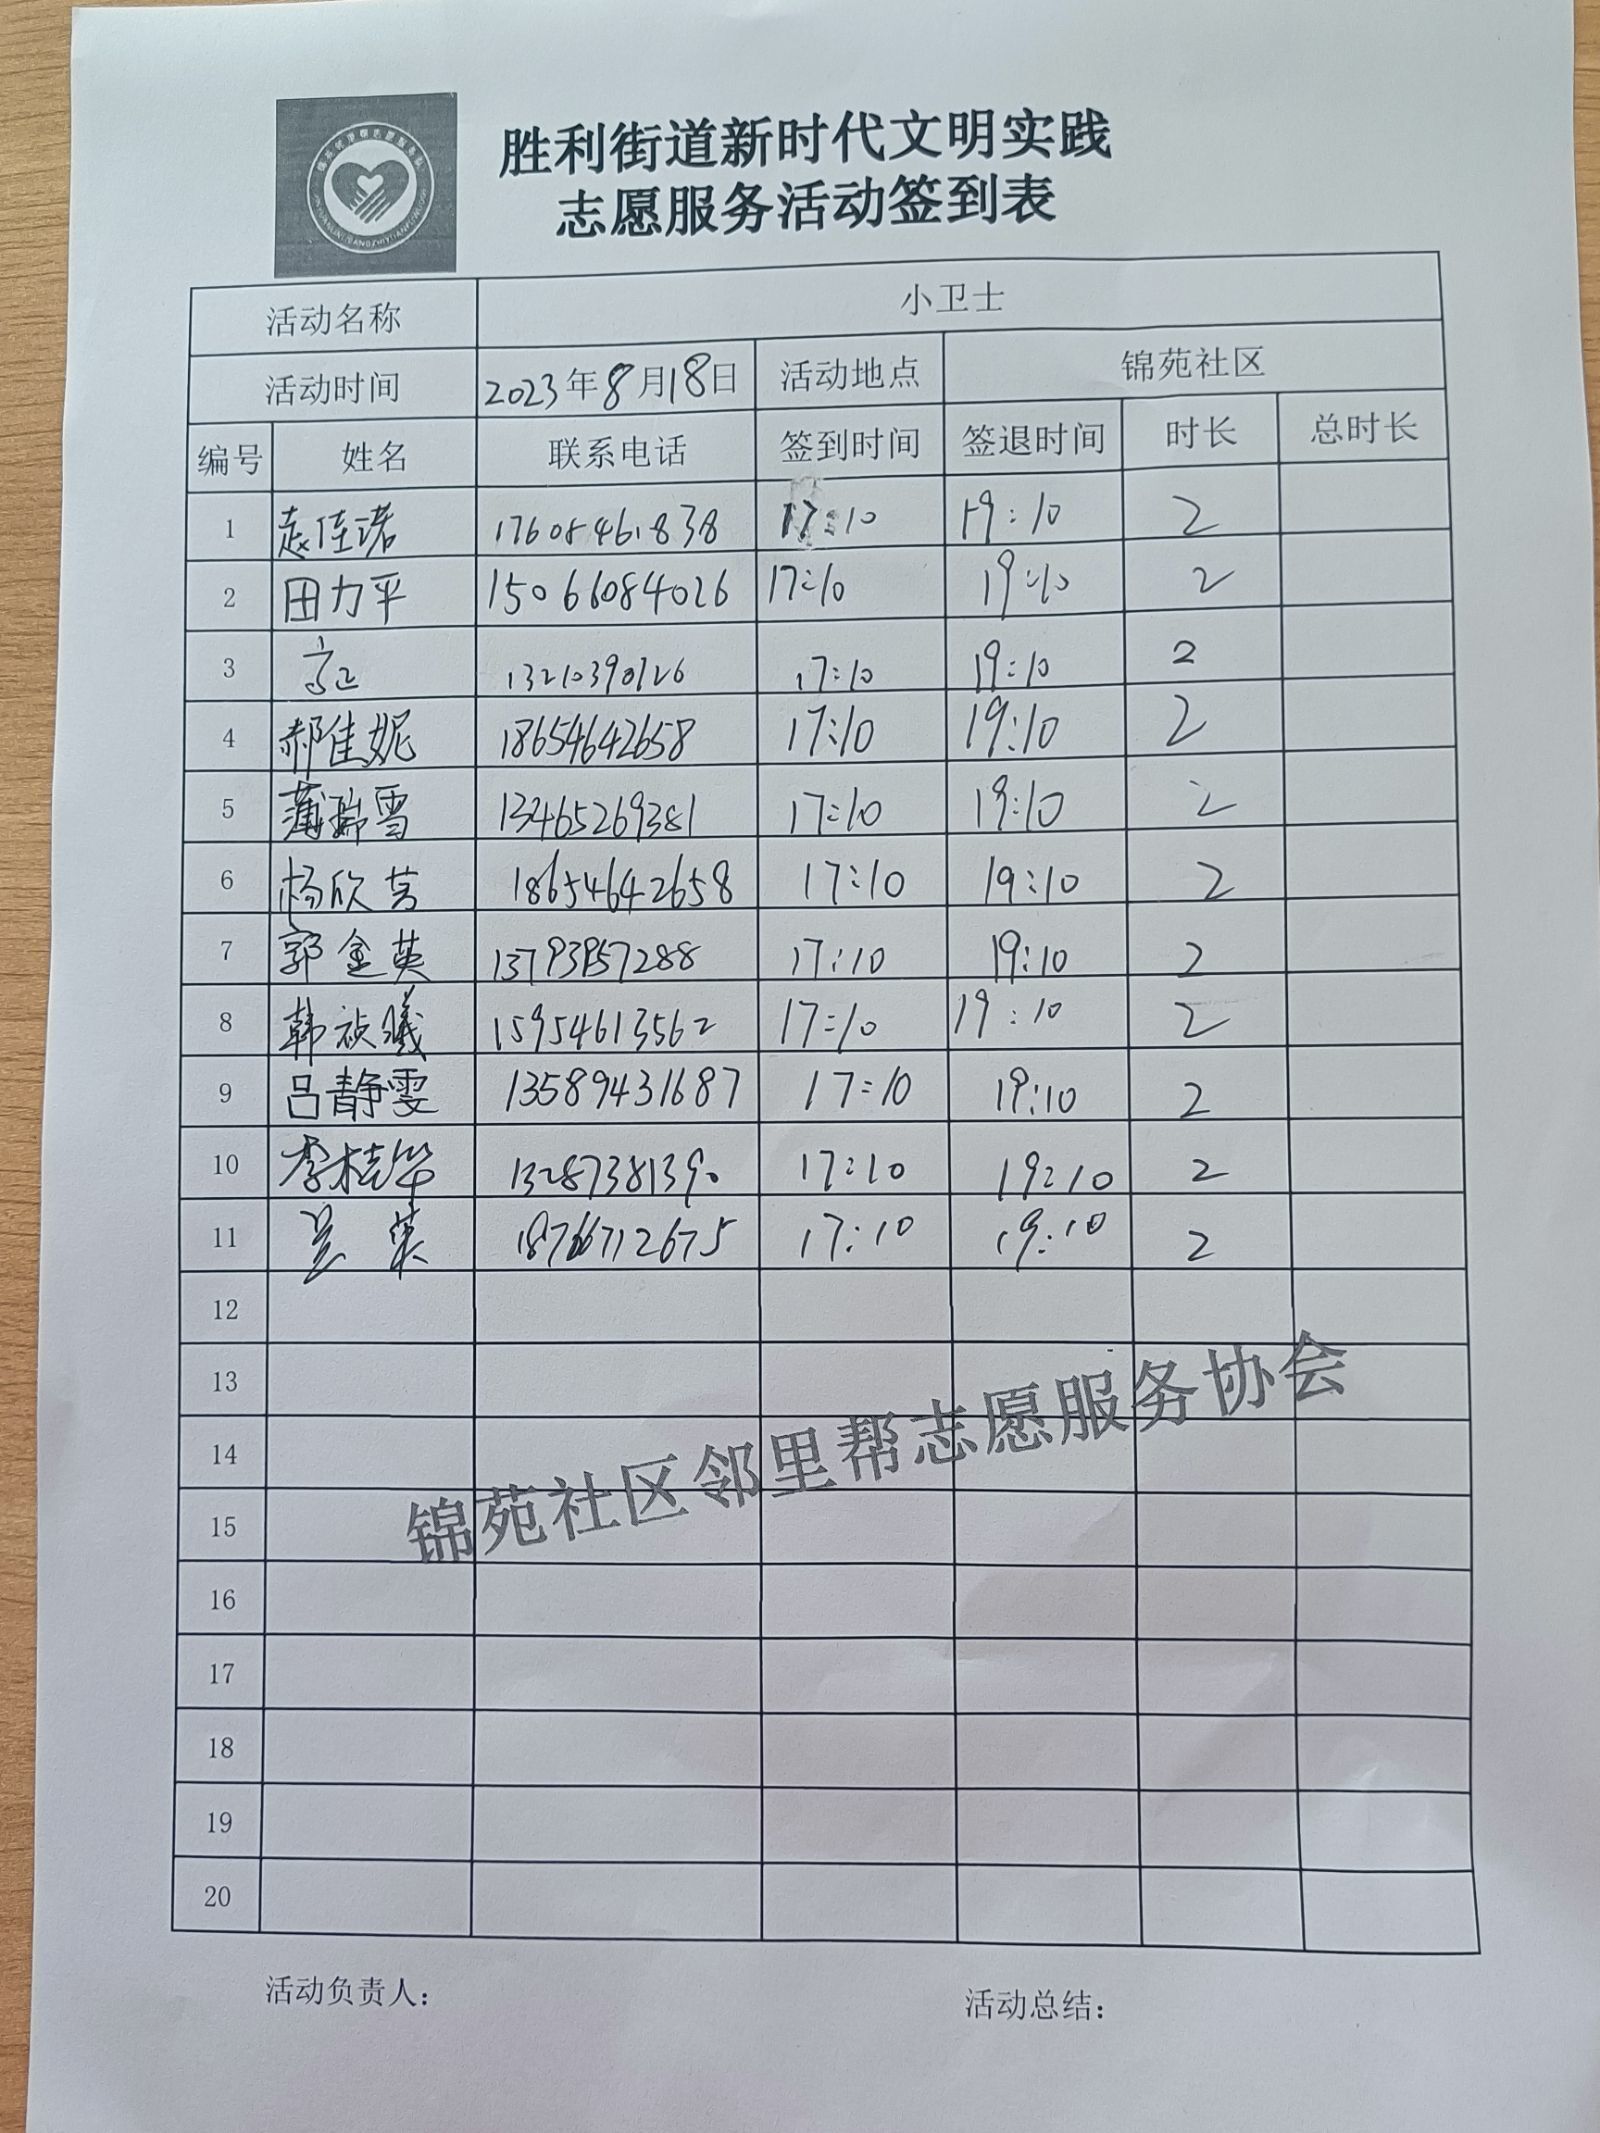 胜利街道新时代文明实践
志愿服务活动签到表
活动名称 小卫士
活动时间 2023年8月18日 活动地点 锦苑社区
编号 姓名 联系电话 签到时间 签退时间 时长 总时长
1 赵佳诺 17608461838 17:10 19:10 2
2 田力平 15066084026 17:10 19:10 2
3 13210390126 17:10 19:10 2
4 郝佳妮 18654642658 17:10 19:10 2
5 蒲瑞雪 13465269381 17:10 19:10 2
6 杨欣芸 18654642658 17:10 19:10 2
7 郭金英 17:10 19:10 2
8 韩祯曦 15954613562 17:10 19:10 2
9 吕静雯 13589431687 17:10 19:10 2
10 李桂华 13287381390 17:10 19:10 2
11 18766712675 17:10 19:10 2
12
13
14
15
16
17
18
19
20
锦苑社区邻里帮志愿服务协会
活动负责人: 活动总结: